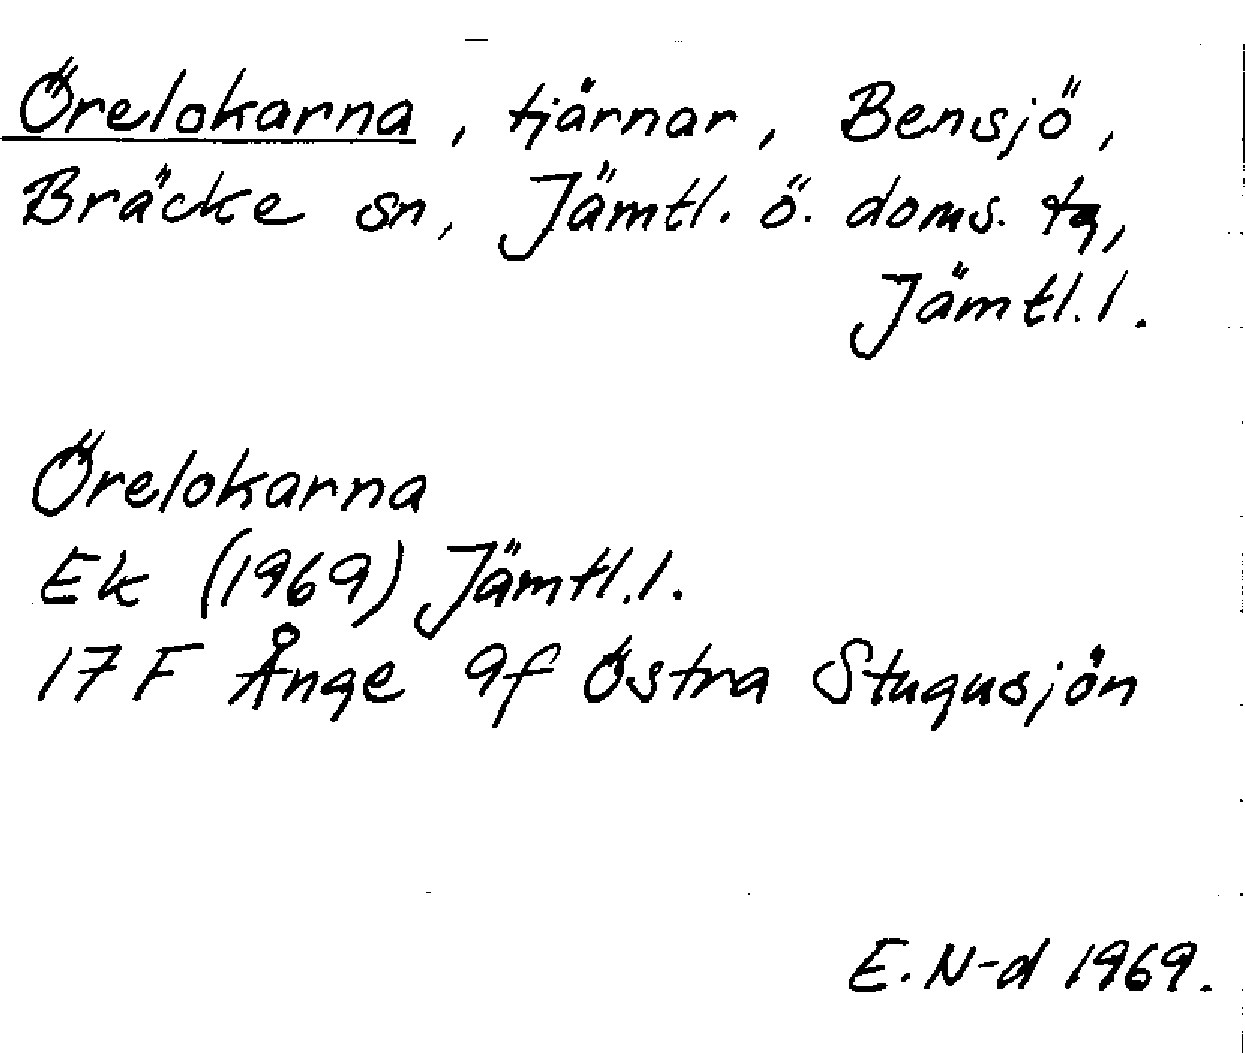 Örelokarna, tjärnar, Bensjö,
Bräcke sn, Jämtl. ö. doms. tg,
Jämtl.l.
Örelokarna
Ek (1969) Jämtl.l.
17 F Ånge 9f Östra Stugusjön
E. N-d 1969.